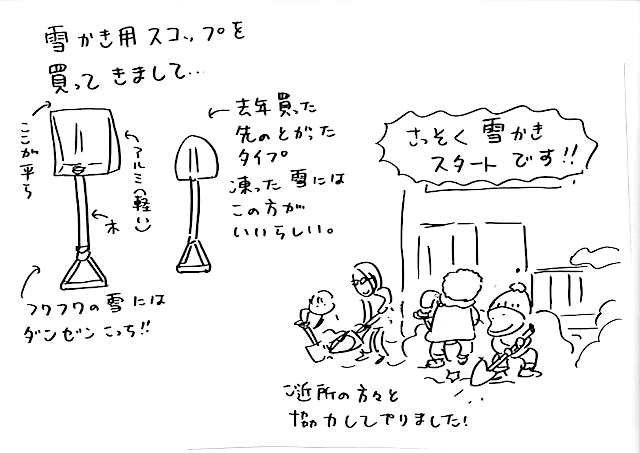 雪かき用スコップを
買ってきまして…
ここが平ら
アルミ(軽い)
木
フワフワの雪には
ダンゼンこっち!!
去年買った
先のとがった
タイプ
凍った雪には
この方が
いいらしい。
さっそく雪かき
スタートです!!
ご近所の方々と
協力してやりました!